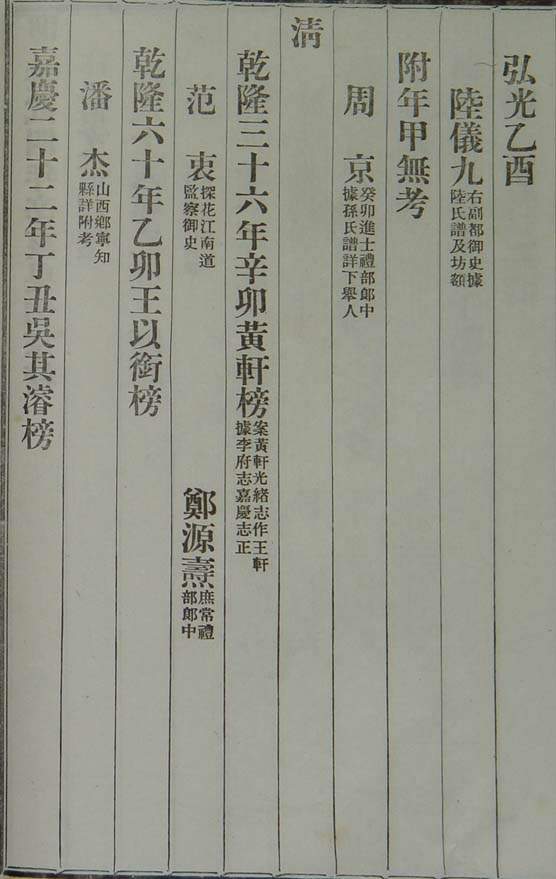 弘光乙酉
陸儀九右副都御史據
陸氏譜及坊額
附年甲無考
周京癸卯進士禮部郎中
據孫氏譜詳下舉人
清
乾隆三十六年辛卯黃軒榜案黃軒光緒志作王軒
據李府志嘉慶志正
范衷探花江南道
監察御史
鄭源燾庶常禮
部郎中
乾隆六十年乙卯王以銜榜
潘杰山西鄉寧知
縣詳附考
嘉慶二十二年丁丑吳其濬榜